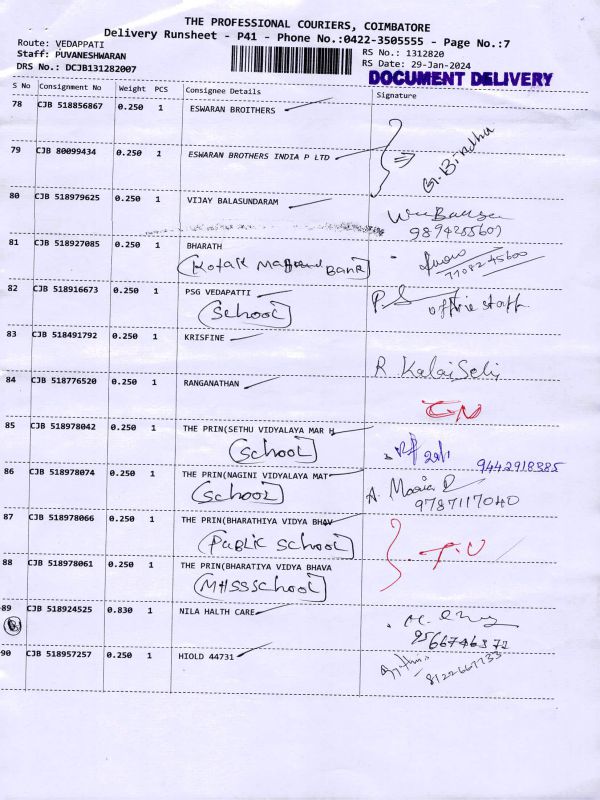 THE PROFESSIONAL COURIERS, COIMBATORE
Delivery Runsheet - P41 - Phone No.:0422-3505555 - Page No.:7
Route: VEDAPPATI
Staff: PUVANESHWARAN
DRS No.: DCJB131282007
RS No.: 1312820
RS Date: 29-Jan-2024
DOCUMENT DELIVERY
S No Consignment No Weight PCS Consignee Details Signature
78 CJB 518856867 0.250 1 ESWARAN BROITHERS
79 CJB 80099434 0.250 1 ESWARAN BROTHERS INDIA P LTD
G. Bindhu
80 CJB 518979625 0.250 1 VIJAY BALASUNDARAM
9894255607
81 CJB 518927085 0.250 1 BHARATH
Kotak Bank
7708245600
82 CJB 518916673 0.250 1 PSG VEDAPATTI
School
office staff
83 CJB 518491792 0.250 1 KRISFINE
R Kalaiselvi
84 CJB 518776520 0.250 1 RANGANATHAN
85 CJB 518978042 0.250 1 THE PRIN(SETHU VIDYALAYA MAR H
School
9442918385
86 CJB 518978074 0.250 1 THE PRIN(NAGINI VIDYALAYA MAT
School
A. Maria D
9787117040
87 CJB 518978066 0.250 1 THE PRIN(BHARATHIYA VIDYA BHAV
Public School
88 CJB 518978061 0.250 1 THE PRIN(BHARATIYA VIDYA BHAVA
MHSS School
89 CJB 518924525 0.830 1 NILA HALTH CARE
9566746372
90 CJB 518957257 0.250 1 HIOLD 44731
8122667733